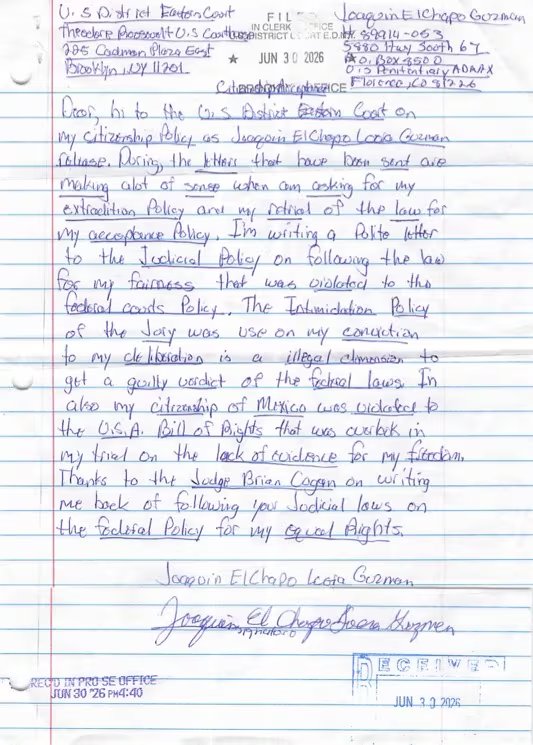 U.S District Eastern Court
Theodore Roosevelt U.S Courthouse
225 Cadman Plaza East
Brooklyn, NY 11201
FILED
IN CLERK'S OFFICE
US DISTRICT COURT E.D.N.Y.
★ JUN 30 2026 ★
OFFICE
Joaquin ElChapo Guzman
# 89914-053
5880 Hwy South 67
P.O. Box 8500
U.S Penitentiary ADMAX
Florence, CO 81226
Citizenship Acceptance
Dear, hi to the U.S District Eastern Court on
my citizenship Policy as Joaquin ElChapo Loera Guzman
release. During, the letters that have been sent are
making alot of sense when am asking for my
extradition Policy and my retrial of the law for
my acceptance Policy. I'm writing a Polite letter
to the Judicial Policy on following the law
for my fairness that was violated to the
federal courts Policy. The Intimidation Policy
of the Jory was use on my conviction
to my deliberation is a illegal dimension to
get a guilly verdict of the federal laws. In
also my citizenship of Mexico was violated to
the U.S.A. Bill of Rights that was overlook in
my trial on the lack of evidence for my freedom.
Thanks to the Judge Brian Cogan on writing
me back of following your Judicial laws on
the federal Policy for my equal Rights.
Joaquin ElChapo Loera Guzman
Joaquin El Chapo Loera Guzman
signature
REC'D IN PRO SE OFFICE
JUN 30 '26 PM4:40
RECEIVED
JUN 30 2026